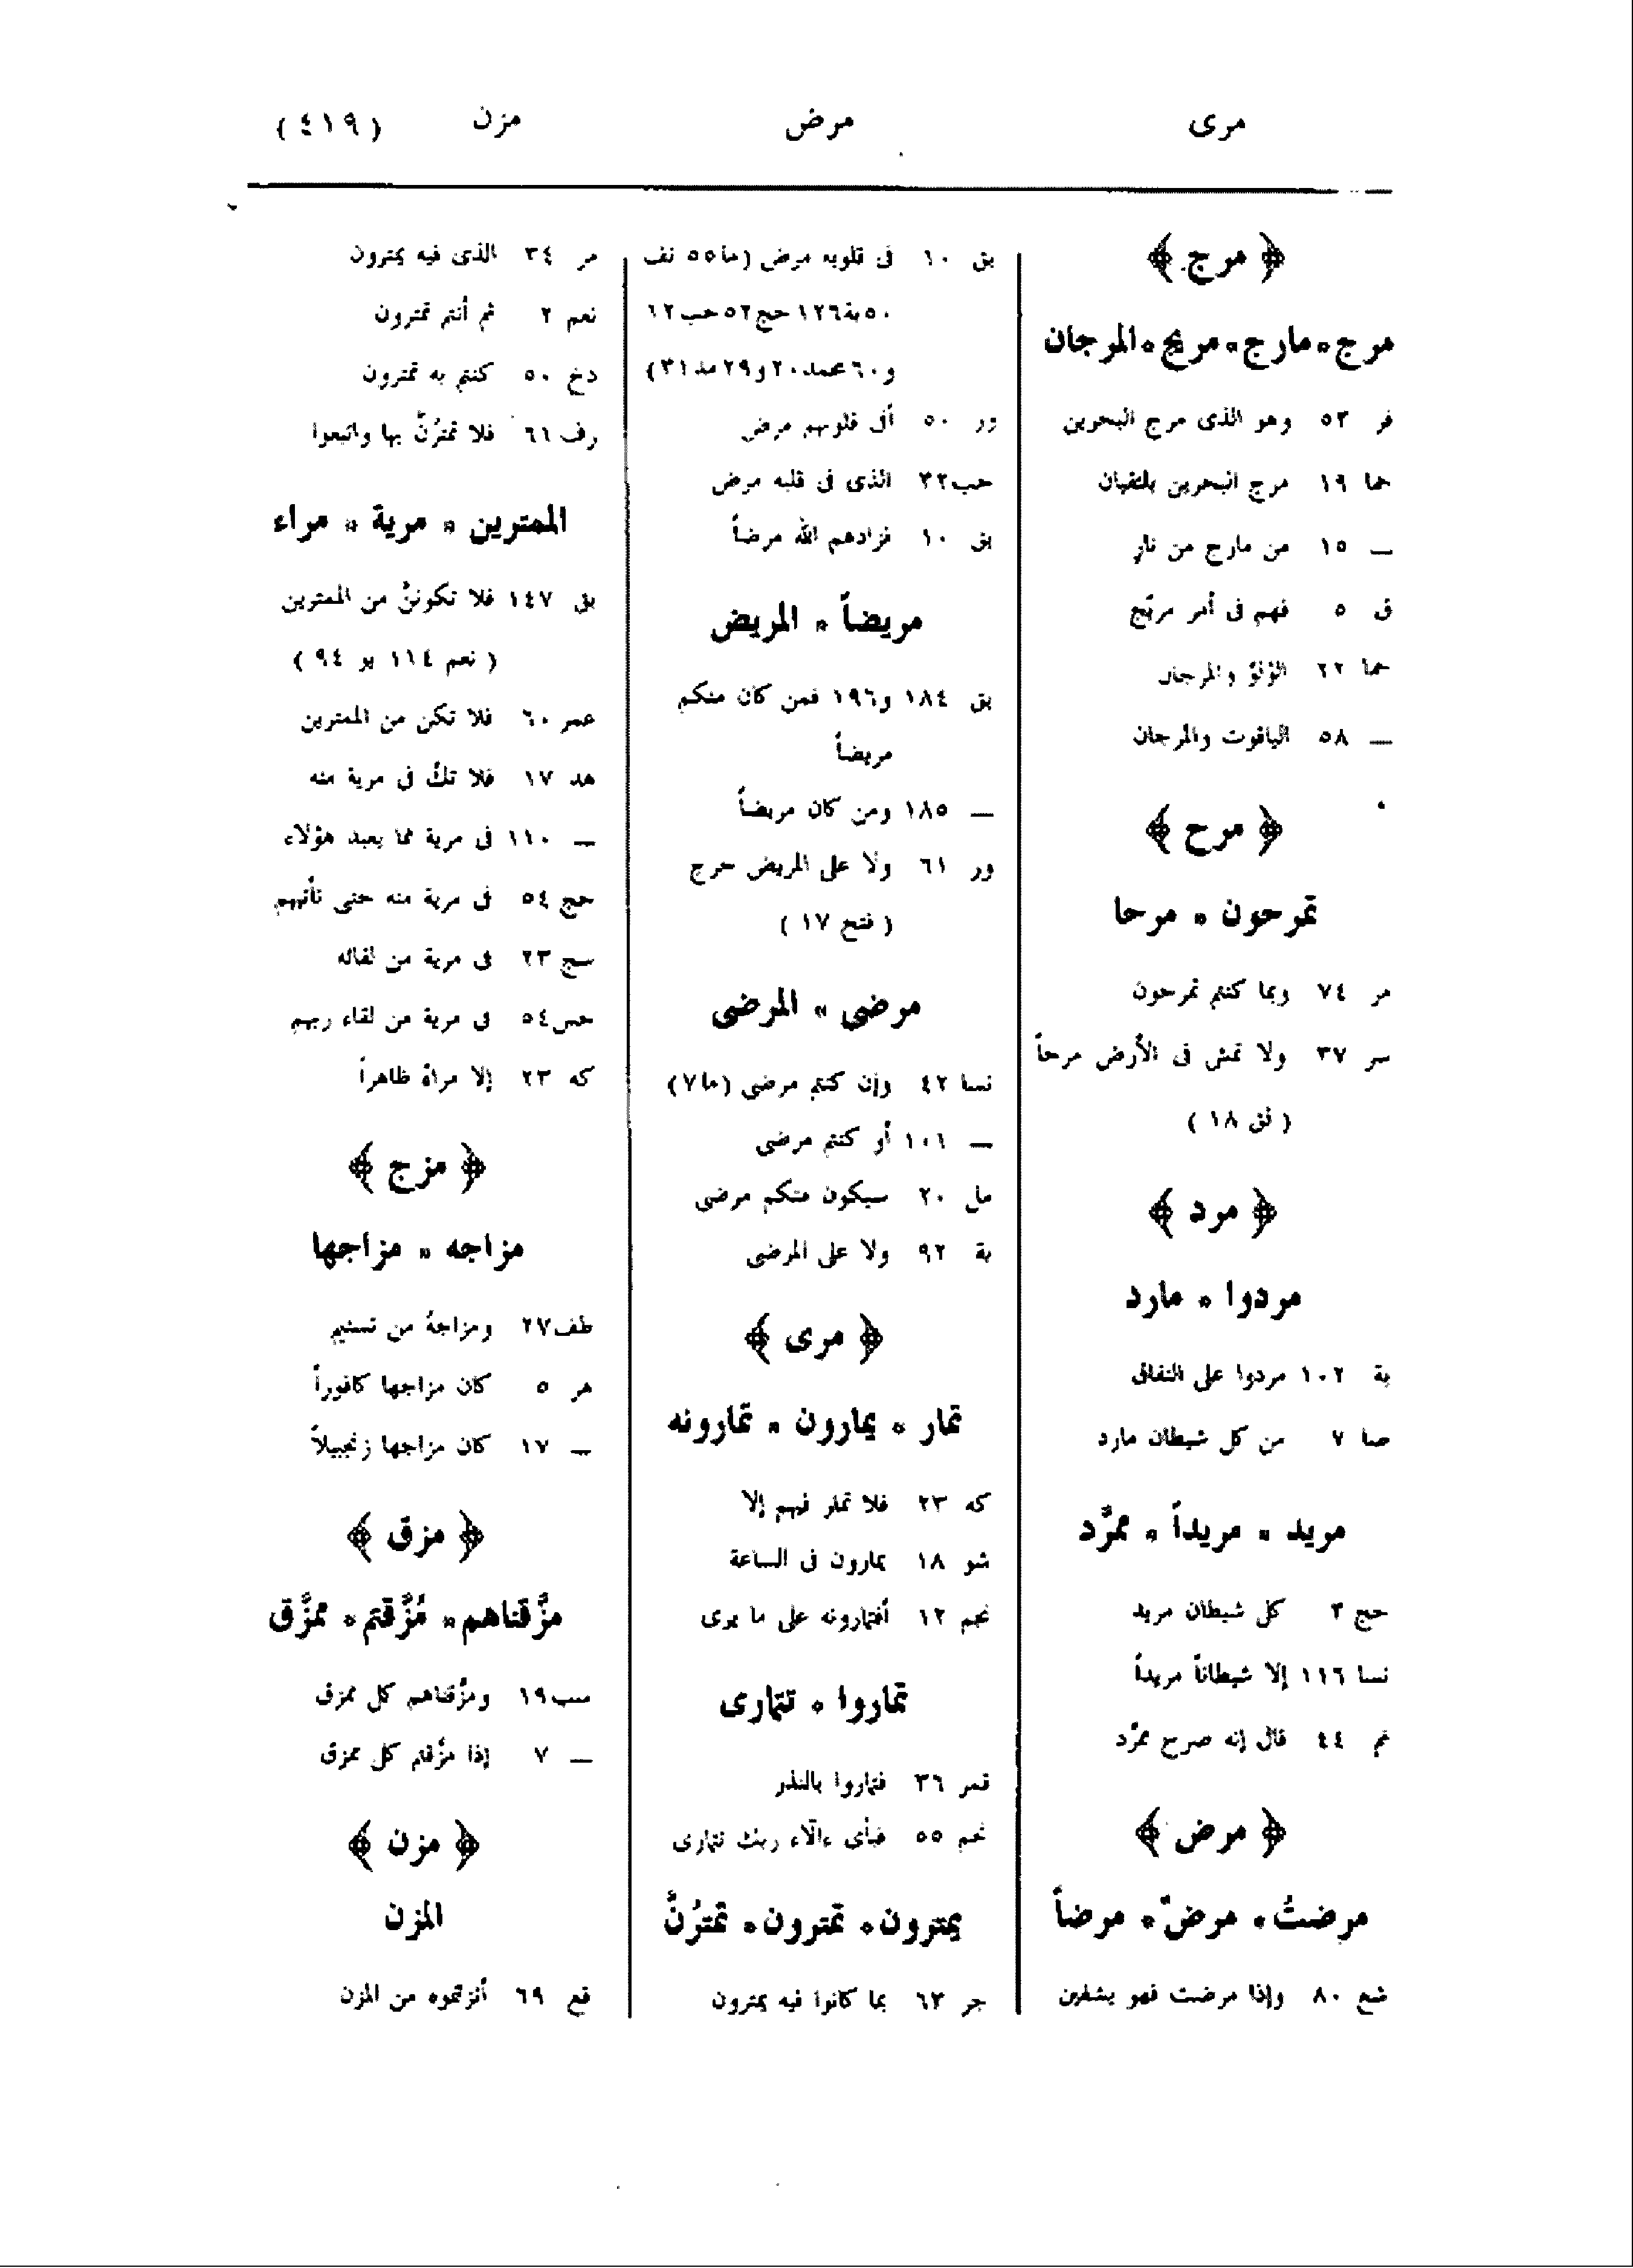 مرى مرض مزن (٤١٩)
﴿ مرج ﴾
مرج * مارج * مريج * المرجان
فر ٥٣ وهو الذى مرج البحرين
حما ١٩ مرج البحرين يلتقيان
— ١٥ من مارج من نار
ق ٥ فهم فى أمر مريج
حما ٢٢ اللؤلؤ والمرجان
— ٥٨ الياقوت والمرجان
﴿ مرح ﴾
تمرحون * مرحا
مر ٧٤ وبما كنتم تمرحون
سر ٣٧ ولا تمش فى الأرض مرحاً
( لق ١٨ )
﴿ مرد ﴾
مردوا * مارد
بة ١٠٢ مردوا على النفاق
صا ٧ من كل شيطان مارد
مريد * مريداً * ممرَّد
حج ٣ كل شيطان مريد
نسا ١١٦ إلا شيطاناً مريداً
نم ٤٤ قال إنه صرح ممرَّد
﴿ مرض ﴾
مرضتُ * مرضٌ * مرضاً
شع ٨٠ وإذا مرضت فهو يشفين
بق ١٠ فى قلوبه مرض (ما ٥٥ نف
٥٠ بة ١٢٦ حج ٥٢ حب ١٢
و ٦٠ محمد ٢٠ و ٢٩ مد ٣١)
ور ٥٠ أفى قلوبهم مرض
حب ٣٢ الذى فى قلبه مرض
بق ١٠ فزادهم الله مرضاً
مريضاً * المريض
بق ١٨٤ و ١٩٦ فمن كان منكم
مريضاً
— ١٨٥ ومن كان مريضاً
ور ٦١ ولا على المريض حرج
( فتح ١٧ )
مرضى * المرضى
نسا ٤٢ وإن كنتم مرضى (ما ٧)
— ١٠١ أو كنتم مرضى
مل ٢٠ سيكون منكم مرضى
بة ٩٢ ولا على المرضى
﴿ مرى ﴾
تمار * يمارون * تمارونه
كه ٢٣ فلا تمار فيهم إلا
شو ١٨ يمارون فى الساعة
نجم ١٢ أفتمارونه على ما يرى
تماروا * تتمارى
قمر ٣٦ فتماروا بالنذر
نجم ٥٥ فبأى ءالآء ربك تتمارى
يمترون * تمترون * تمترُنَّ
جر ٦٣ بما كانوا فيه يمترون
مر ٣٤ الذى فيه يمترون
نعم ٢ ثم أنتم تمترون
دخ ٥٠ كنتم به تمترون
رف ٦١ فلا تمترُنَّ بها واتبعوا
الممترين * مرية * مراء
بق ١٤٧ فلا تكوننَّ من الممترين
( نعم ١١٤ يو ٩٤ )
عمر ٦٠ فلا تكن من الممترين
هد ١٧ فلا تكُ فى مرية منه
— ١١٠ فى مرية مما يعبد هؤلاء
حج ٥٤ فى مرية منه حتى تأتيهم
سج ٢٣ فى مرية من لقائه
حس ٥٤ فى مرية من لقاء ربهم
كه ٢٣ إلا مراءً ظاهراً
﴿ مزج ﴾
مزاجه * مزاجها
طف ٢٧ ومزاجهُ من تسنيم
هر ٥ كان مزاجها كافوراً
— ١٧ كان مزاجها زنجبيلاً
﴿ مزق ﴾
مزَّقناهم * مُزَّقتم * ممزَّق
سب ١٩ ومزَّقناهم كل ممزق
— ٧ إذا مزَّقتم كل ممزق
﴿ مزن ﴾
المزن
قع ٦٩ أنزلتموه من المزن